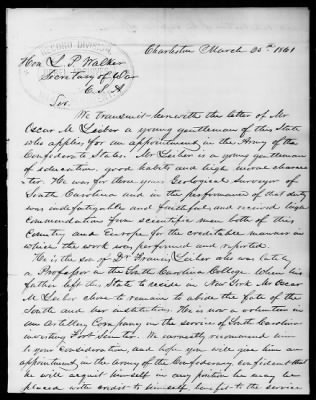 Charleston March 20th 1861
RECORD DIVISION
Hon L. P. Walker
Secretary of War
C. S. A
Sir.
We transmit herewith the letter of Mr
Oscar M Leiber a young gentleman of this State
who applies for an appointment in the Army of the
Confederate States. Mr Leiber is a young gentleman
of education, good habits and high moral charac-
ter. He was for three years Geological Surveyor of
South Carolina and in the performance of that duty
was indefatigable and faithful, and received high
commendation from scientific men both of this
Country and Europe for the creditable manner in
which the work was performed and reported.
He is the son of Dr Francis Leiber who was lately
a Professor in the South Carolina College. When his
father left this State to reside in New York Mr Oscar
M Leiber chose to remain to abide the fate of the
South and her institutions. He is now a volunteer in
an Artillery Company in the service of South Carolina
investing Fort Sumter. We earnestly recommend him
to your consideration, and hope you will give him an
appointment in the army of the Confederacy confident that
he will acquit himself in any position he may be
placed with credit to himself, benefit to the service